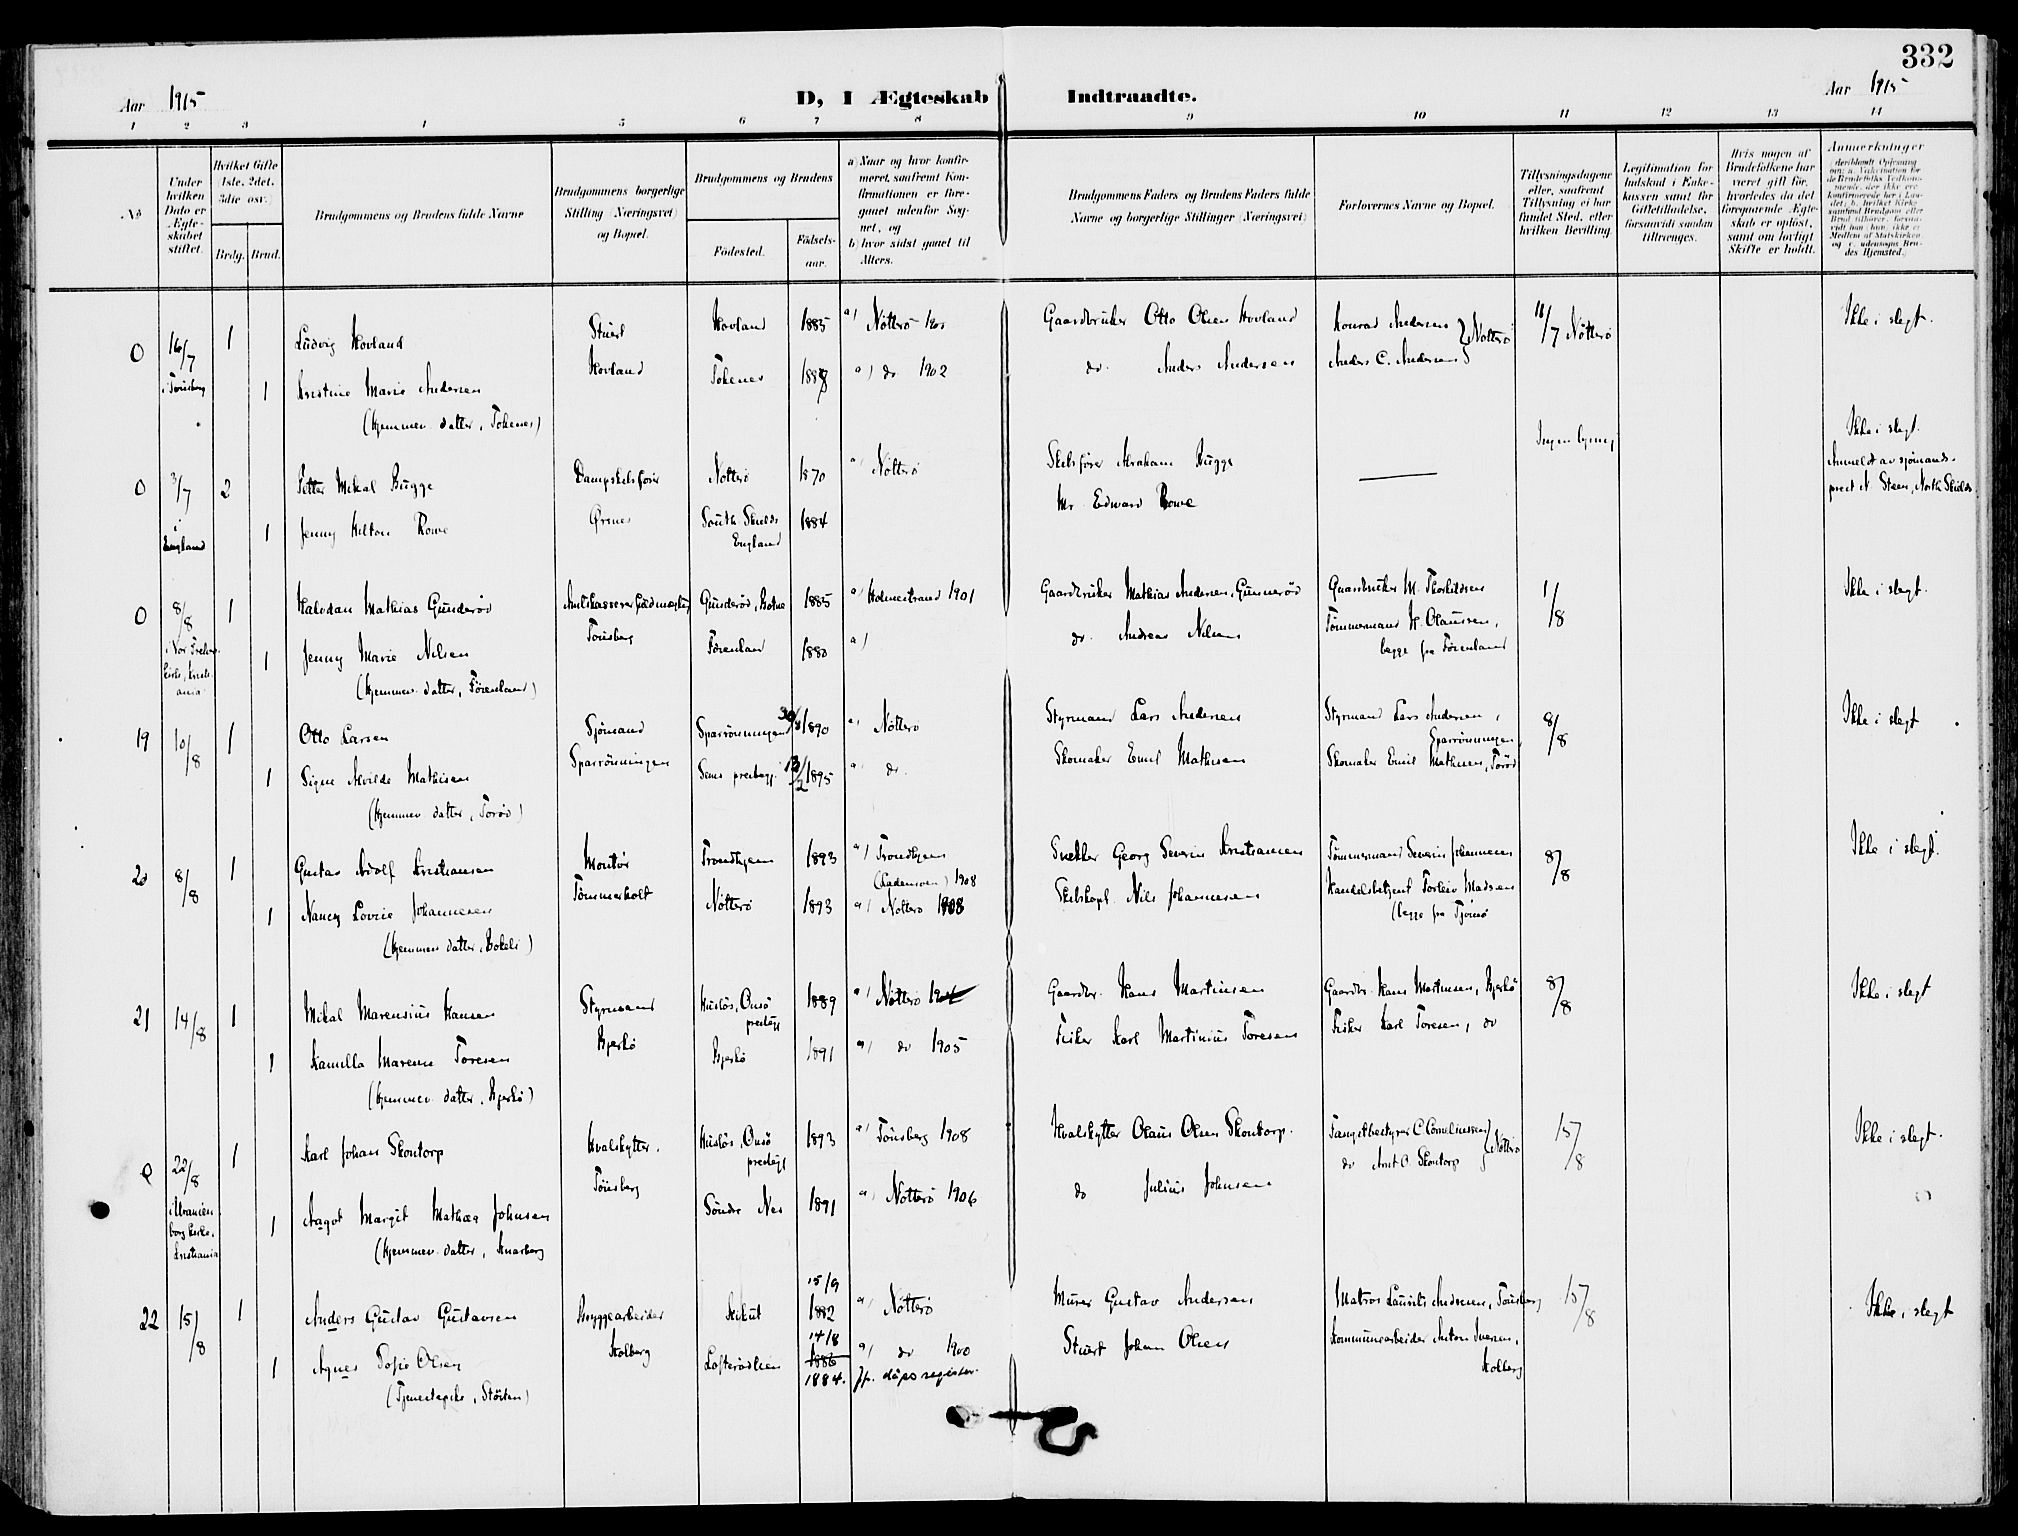 332
Aar 1915
D, I Ægteskab Indtraadte.
Aar 1915
1 2 3 4 5 6 7 8 9 10 11 12 13 14
No
Under hvilken Dato er Ægteskabet stiftet.
Hvilket Gifte (1ste, 2det, 3die osv.)
Brdg. Brud.
Brudgommens og Brudens fulde Navne
Brudgommens borgerlige Stilling (Næringsvei) og Bopæl.
Brudgommens og Brudens
Fødested.
Fødselsaar.
a) Naar og hvor konfirmeret, saafremt Konfirmationen er foregaaet udenfor Sognet, og
b) hvor sidst gaaet til Alters.
Brudgommens Faders og Brudens Faders fulde Navne og borgerlige Stillinger (Næringsvei)
Forlovernes Navne og Bopæl.
Tillysningsdagene eller, saafremt Tillysning ei har fundet Sted, efter hvilken Bevilling.
Legitimation for Indskud i Enkekassen samt for Giftetilladelse, forsaavidt saadan tiltrænges.
Hvis nogen af Brudefolkene har været gift før, hvorledes da det foregaaende Ægteskab er opløst, samt om lovligt Skifte er holdt.
Anmerkninger
0 16/7 1 Ludvig Hovland Stuert Hovland 1885 a) Nøtterø Gaardbruker Otto Olsen Hovland Konrad Andersen } Nøtterø 18/7 Nøtterø Ikke i slegt.
i Tønsberg 1 Kristine Marie Andersen Hovland Tokenes a) do 1902 do. Anders Andersen Anders C. Andersen
(Hjemmev. datter, Tokenes)
0 3/7 2 Petter Mikal Bugge Dampskibsfører Nøtterø 1870 a) Nøtterø Skibsfører Abraham Bugge — Ingen lysning Ikke i slegt.
Anmeldt av sjømandsprest N. Steen, North Shields
i England 1 Jenny Hilton Rowe Ørsnes South Shields England 1884 Mr. Edward Rowe
0 8/8 1 Halvdan Mathias Gunderød Tønsberg Gunderød, Botne 1885 a) Holmestrand 1901 Gaardbruker Mathias Andersen, Gunnerød Gaardbruker M. Thorkildsen 1/8 Ikke i slegt.
i Vor Frelsers kirke, Kristiania 1 Jenny Marie Nilsen Førenland 1880 a) do. Andreas Nilsen Tømmermand H. Olaussen,
begge fra Førenland
(Hjemmev. datter, Førenland)
19 10/8 1 Otto Larsen Sjømand Sparrønningen 1890 a) Nøtterø Styrmand Lars Andersen Styrmand Lars Andersen, Sparrønningen, 8/8 Ikke i slegt
1 Signe Alvilde Mathisen Sparrønningen Sems prestegj. 13/2 1895 a) do. Skomaker Emil Mathisen Skomaker Emil Mathisen, Torød
(Hjemmev. datter, Torød)
20 8/8 1 Gustav Adolf Kristiansen Montør Trondhjem 1893 a) Trondhjem
(Lademoen) 1908 Snekker Georg Severin Kristiansen Tømmermand Severin Johannesen 8/8 Ikke i slegt.
1 Nancy Lovise Johannesen Tømmerholt Nøtterø 1893 a) Nøtterø 1908 Skibskapt. Nils Johannesen Handelsbetjent Torleiv Madsen
(begge fra Tjømø
(Hjemmev. datter, Bokeli)
21 14/8 1 Mikal Marensius Hansen Styrmand Husløs, Onsø prestegj 1889 a) Nøtterø Gaardbr. Hans Martinsen Gaardbr. Hans Martinsen, Bjerkø 8/8 Ikke i slegt
1 Kamilla Marenne Toresen Bjerkø Bjerkø 1891 a) do 1905 Fisker Karl Martinius Toresen Fisker Karl Toresen, do
(Hjemmev. datter, Bjerkø)
0 22/8 1 Karl Johan Skontorp Hvalskytter. Husløs, Onsø prestegj 1893 a) Tønsberg 1908 Hvalskytter Olaus Olsen Skontorp. Fangstbestyrer C. Corneliussen } Nøtterø 15/8 Ikke i slegt.
i Uranienborg kirke, Kristiania 1 Aagot Margit Mathea Johnsen Tønsberg Søndre Nes 1891 a) Nøtterø 1906 do Julius Johnsen do Arnt O. Skontorp
(Hjemmev. datter, Knarberg
22 15/8 1 Anders Gustav Gustavsen Bryggearbeider 15/9 1882 a) Nøtterø Murer Gustav Andersen Matros Laurits Andersen, Tønsberg 15/8 Ikke i slegt
1 Agnes Sofie Olsen Kolberg 14/8 1886 1884. a) do 1900
jfr. dåpsregister. Stuert Johan Olsen Kommunearbeider Anton Iversen, Kolberg
(Tjenestepike, Støiten)